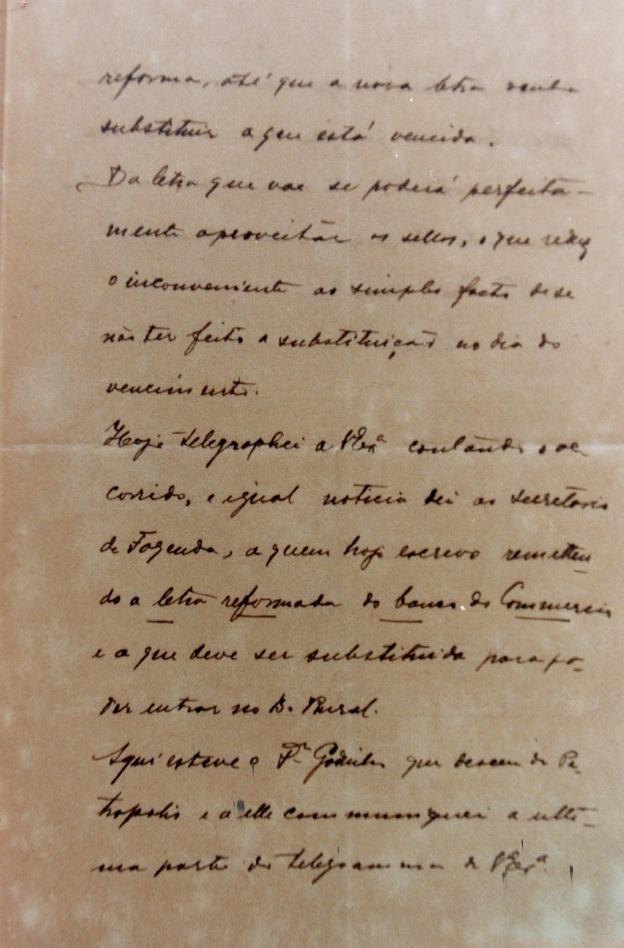 reforma, até que a nova letra venha
substituir a que está vencida.
Da letra que vae se poderá perfeita-
mente aproveitar os sellos, o que reduz
o inconveniente ao simples facto de se
não ter feito a substituição no dia do
vencimento.
Hoje telegraphei a VExª contando o oc-
corrido, e igual noticia dei ao secretario
de Fazenda, a quem hoje escrevo remetten-
do a letra reformada do banco do Commercio
e a que deve ser substituida para po-
der entrar no B. Rural.
Aqui esteve o que desceu de Pe-
tropolis e a elle communiquei a ulti-
ma parte do telegramma de VExª.